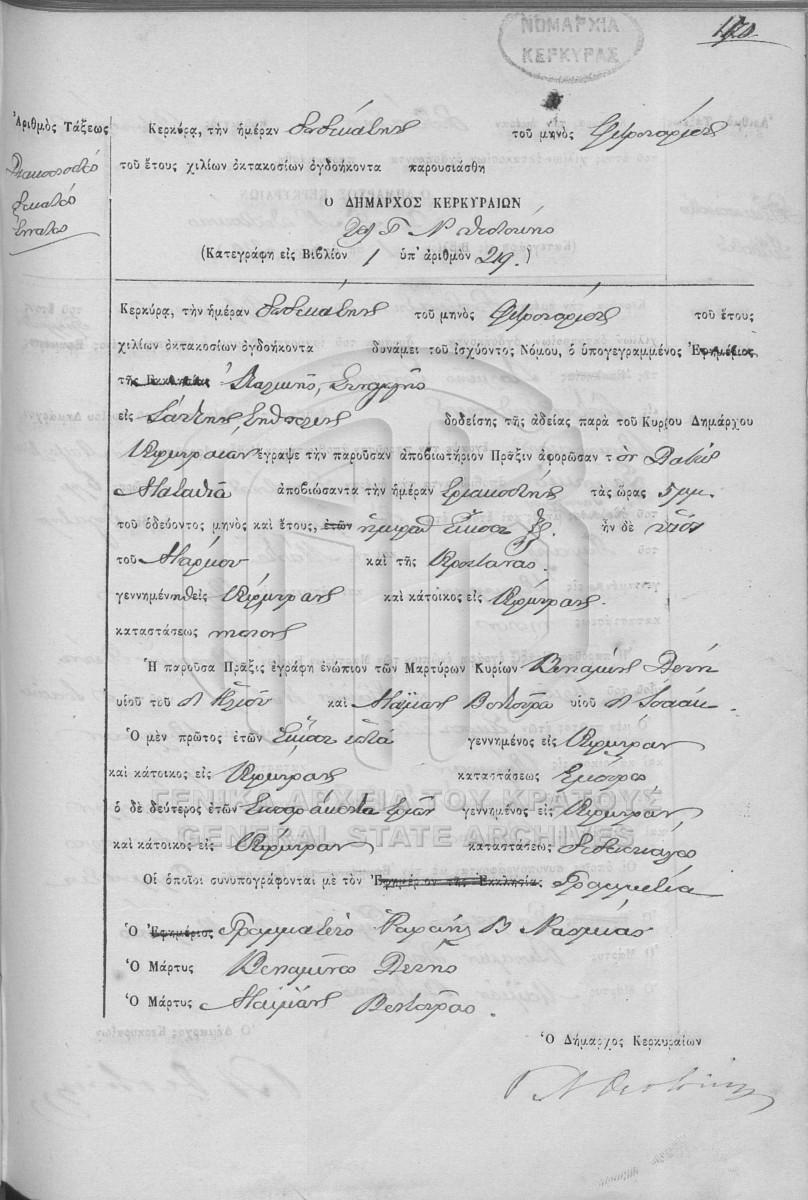 ΝΟΜΑΡΧΙΑ
ΚΕΡΚΥΡΑΣ
Ἀριθμὸς Τάξεως
Διακοσιοστὸς
Δέκατος
Ἔννατος
Κερκύρᾳ, τὴν ἡμέραν δωδεκάτην τοῦ μηνὸς Φεβρουαρίου
τοῦ ἔτους χιλίων ὀκτακοσίων ὀγδοήκοντα παρουσιάσθη
Ο ΔΗΜΑΡΧΟΣ ΚΕΡΚΥΡΑΙΩΝ
Γ Ν Θεοτόκης
(Κατεγράφη εἰς Βιβλίον 1 ὑπ' ἀριθμὸν 219.)
Κερκύρᾳ, τὴν ἡμέραν δωδεκάτην τοῦ μηνὸς Φεβρουαρίου τοῦ ἔτους
χιλίων ὀκτακοσίων ὀγδοήκοντα δυνάμει τοῦ ἰσχύοντος Νόμου, ὁ ὑπογεγραμμένος Ἐφημέριος
τῆς Ἐκκλησίας Συναγωγῆς
εἰς δοθείσης τῆς ἀδείας παρὰ τοῦ Κυρίου Δημάρχου
Κερκυραίων ἔγραψε τὴν παροῦσαν ἀποβιωτήριον Πρᾶξιν ἀφορῶσαν τὸν
Ματαθία ἀποβιώσαντα τὴν ἡμέραν τριακοστὴν τὰς ὥρας 5 μμ.
τοῦ ὁδεύοντος μηνὸς καὶ ἔτους, ἐτῶν ἡμερῶν εἴκοσι ἓξ. ἦν δὲ υἱὸς
τοῦ Μάρκου καὶ τῆς
γεννημένηθεὶς Κέρκυραν καὶ κάτοικος εἰς Κέρκυραν.
καταστάσεως
Ἡ παροῦσα Πρᾶξις ἐγράφη ἐνώπιον τῶν Μαρτύρων Κυρίων Βενιαμὶν
υἱοῦ τοῦ καὶ Βεντούρα υἱοῦ Ἰσαάκ.
Ὁ μὲν πρῶτος ἐτῶν εἴκοσι ἑπτὰ γεννημένος εἰς Κέρκυραν
καὶ κάτοικος εἰς Κέρκυραν καταστάσεως ἔμπορος
ὁ δὲ δεύτερος ἐτῶν τεσσαράκοντα τριῶν γεννημένος εἰς Κέρκυραν
καὶ κάτοικος εἰς Κέρκυραν καταστάσεως διδάσκαλος
Οἱ ὁποῖοι συνυπογράφονται μὲ τὸν Ἐφημέριον τῆς Ἐκκλησίας Γραμματέα
Ὁ Ἐφημέριος Γραμματεὺς Ραφαὴλ Β
Ὁ Μάρτυς Βενιαμίνος
Ὁ Μάρτυς Βεντούρας.
Ὁ Δήμαρχος Κερκυραίων
Γ Ν Θεοτόκης
ΓΕΝΙΚΑ ΑΡΧΕΙΑ ΤΟΥ ΚΡΑΤΟΥΣ
GENERAL STATE ARCHIVES